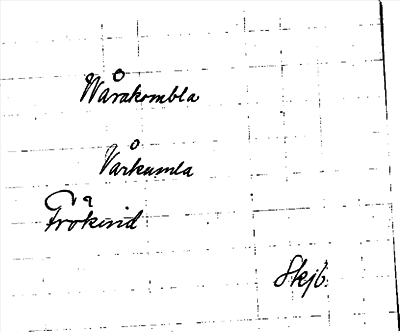 Wårakombla
Vårkumla
Frökind
Skjb.